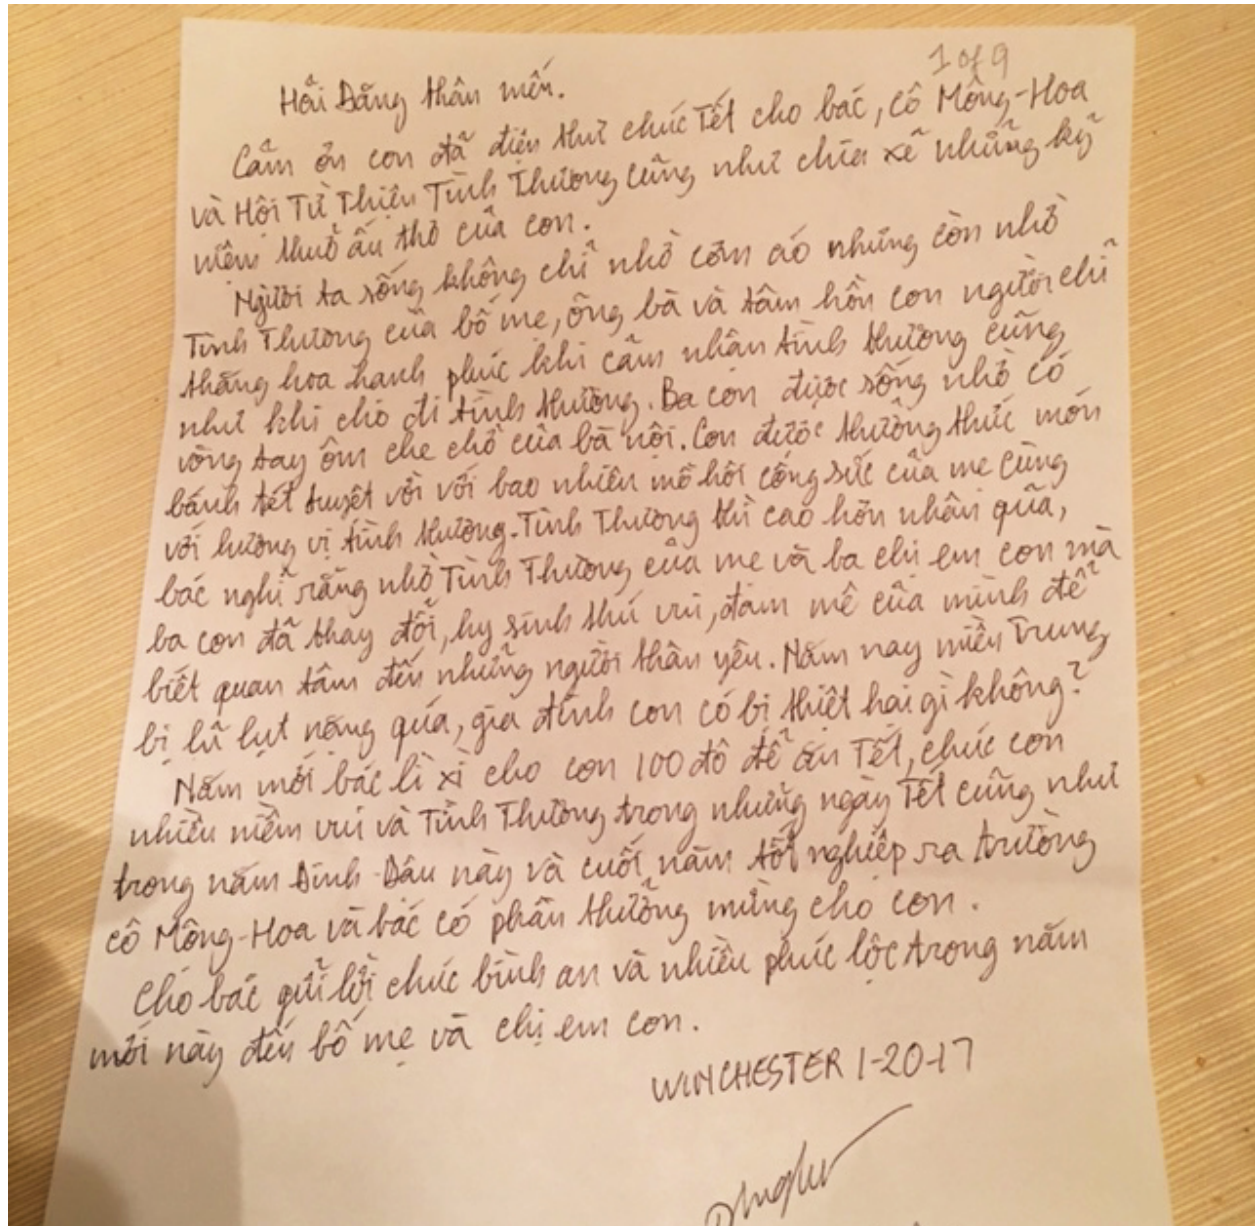 1 of 9
Hải Đăng thân mến.
Cảm ơn con đã điện thư chúc Tết cho bác, cô Mộng-Hoa
và Hội Từ Thiện Tình Thương cũng như chia xẻ những kỷ
niệm thuở ấu thơ của con.
Người ta sống không chỉ nhờ cơm áo nhưng còn nhờ
Tình Thương của bố mẹ, ông bà và tâm hồn con người chỉ
thăng hoa hạnh phúc khi cảm nhận tình thương cũng
như khi cho đi tình thương. Ba con được sống nhờ có
vòng tay ôm che chở của bà nội. Con được thưởng thức món
bánh tét tuyệt vời với bao nhiêu mồ hôi công sức của mẹ cùng
với hương vị tình thương. Tình Thương thì cao hơn nhân quả,
bác nghĩ rằng nhờ Tình Thương của mẹ và ba chị em con mà
ba con đã thay đổi, hy sinh thú vui, đam mê của mình để
biết quan tâm đến những người thân yêu. Năm nay miền Trung
bị lũ lụt nặng quá, gia đình con có bị thiệt hại gì không?
Năm mới bác lì xì cho con 100 đô để ăn Tết, chúc con
nhiều niềm vui và Tình Thương trong những ngày Tết cũng như
trong năm Đinh-Dậu này và cuối năm tốt nghiệp ra trường
cô Mộng-Hoa và bác có phần thưởng mừng cho con.
Cho bác gửi lời chúc bình an và nhiều phúc lộc trong năm
mới này đến bố mẹ và chị em con.
WINCHESTER 1-20-17